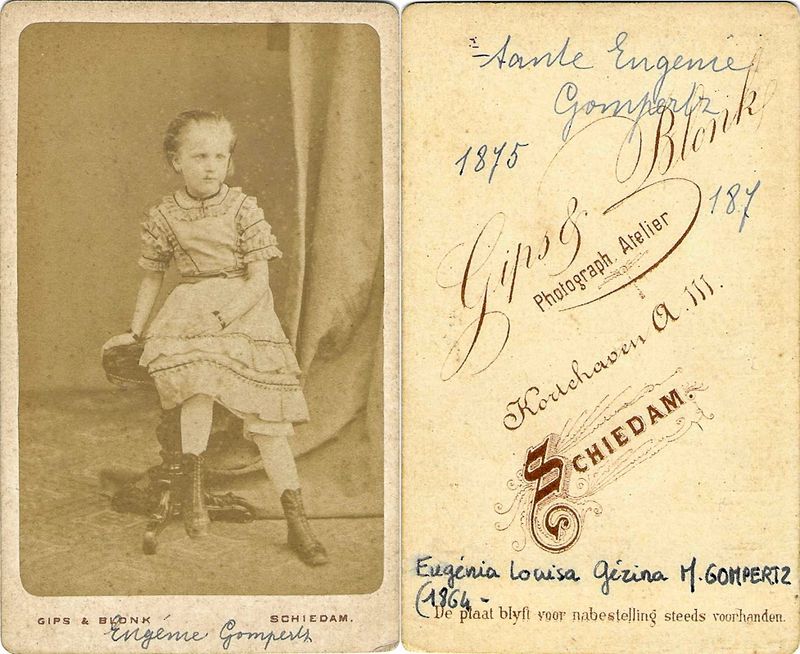 GIPS & BLONK SCHIEDAM.
Eugénie Gompertz
tante Eugenie
Gompertz
1875
187
Gips & Blonk
Photograph. Atelier
Kortehaven A. 111.
SCHIEDAM.
Eugénia Louisa Gézina M. GOMPERTZ
(1864 -
De plaat blyft voor nabestelling steeds voorhanden.